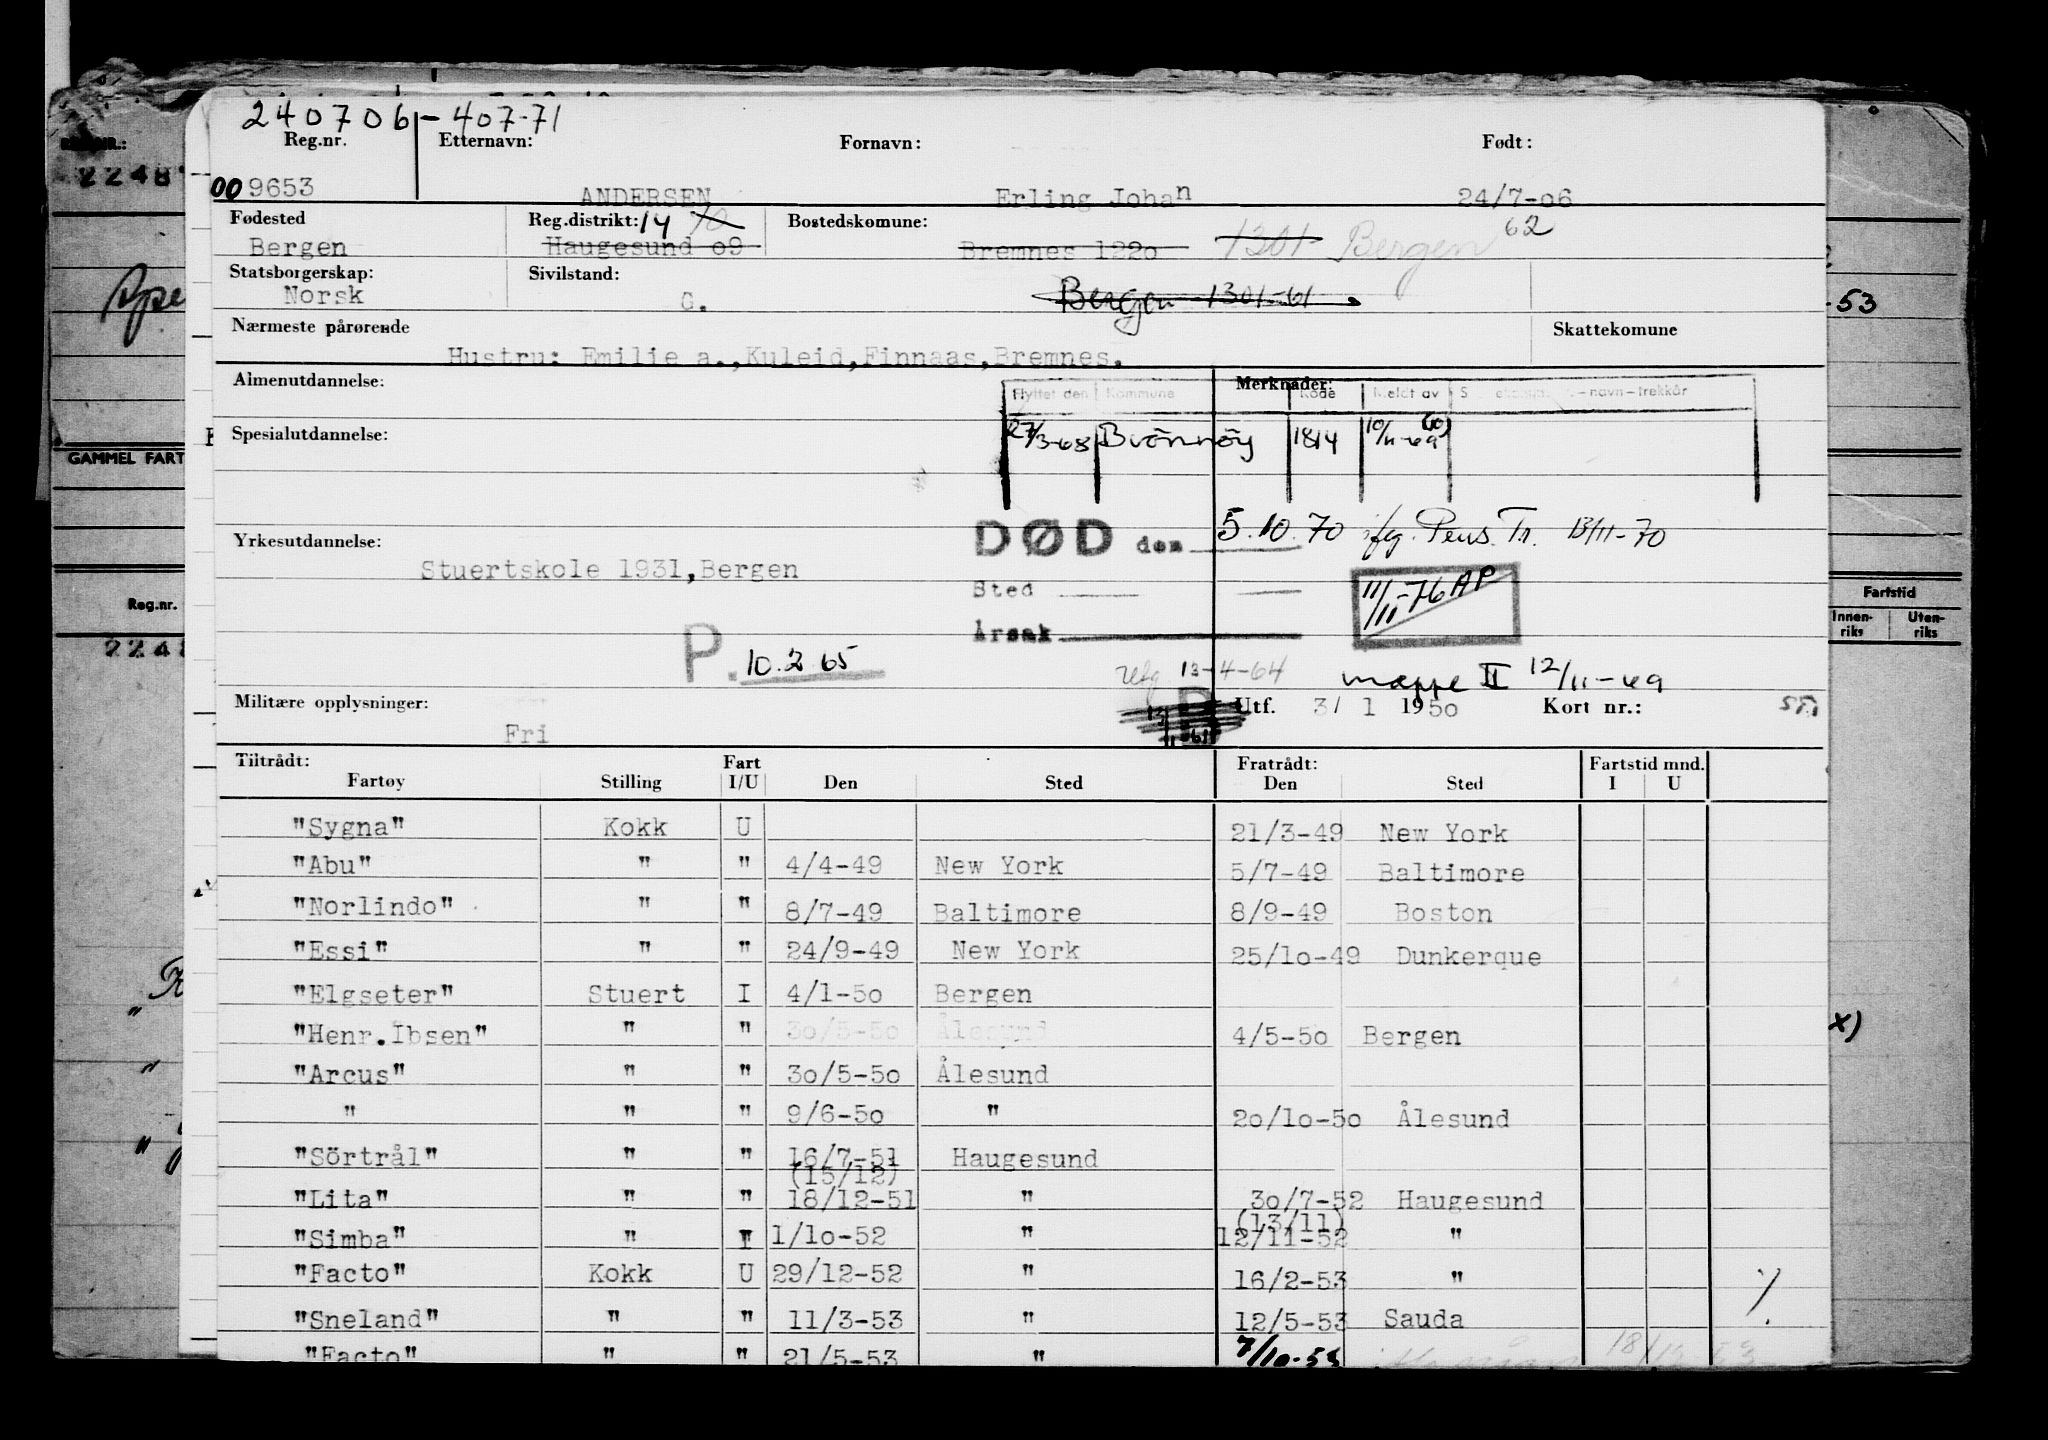 240706-407-71
Reg.nr. Etternavn: Fornavn: Født:
009653 ANDERSEN Erling Johan 24/7-06
Fødested Reg.distrikt: 14 70 Bostedskomune: 62
Bergen Haugesund o9 Bremnes 122o 1301 Bergen
Statsborgerskap: Sivilstand:
Norsk G. Bergen 1301-61
Nærmeste pårørende Skattekomune
Hustru: Emilie a.,Kuleid,Finnaas,Bremnes.
Almenutdannelse: Merknader:
Flyttet den Kommune Kode Meldt av -navn-trekkår
Spesialutdannelse: 27/3-68 Brönnöy 1814 10/11-69
DØD den 5.10.70 ifg. Pens. Tr. 13/11-70
Yrkesutdannelse:
Stuertskole 1931,Bergen
Sted 11/11-76 AP
Årsak
P. 10.2 65
13-4-64 mappe II 12/11-69
Militære opplysninger: Utf. 3/ 1 1950 Kort nr.:
Fri
Tiltrådt: Fart Fratrådt: Fartstid mnd.
Fartøy Stilling I/U Den Sted Den Sted I U
"Sygna" Kokk U 21/3-49 New York
"Abu" " " 4/4-49 New York 5/7-49 Baltimore
"Norlindo" " " 8/7-49 Baltimore 8/9-49 Boston
"Essi" " " 24/9-49 New York 25/1o-49 Dunkerque
"Elgseter" Stuert I 4/1-5o Bergen
"Henr.Ibsen" " " 3o/5-5o Ålesund 4/5-5o Bergen
"Arcus" " " 3o/5-5o Ålesund
" " " 9/6-5o " 2o/1o-5o Ålesund
"Sörtrål" " " 16/7-51 Haugesund
(15/12)
"Lita" " " 18/12-51 " 3o/7-52 Haugesund
(13/11)
"Simba" " I 1/1o-52 " 12/11-52 "
"Facto" Kokk U 29/12-52 " 16/2-53 "
"Sneland" " " 11/3-53 " 12/5-53 Sauda
"Facto" " " 21/5-53 " 7/10-53
REG.NR.:
2248
53
GAMMEL FART
Reg.nr.
2248
Fartstid
Innen-riks Uten-riks
x)